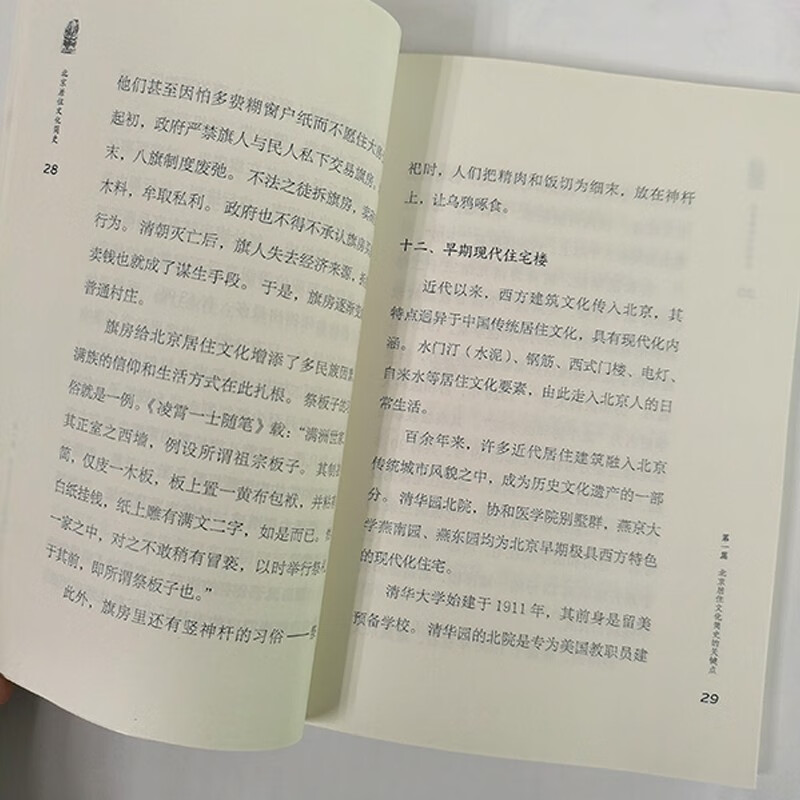 北京居住文化简史
28
他们甚至因怕多费糊窗户纸而不愿住大
起初，政府严禁旗人与民人私下交易旗房，
末，八旗制度废弛。不法之徒拆旗房，
木料，牟取私利。政府也不得不承认旗房
行为。清朝灭亡后，旗人失去经济来源，
卖钱也就成了谋生手段。于是，旗房逐渐
普通村庄。
旗房给北京居住文化增添了多民族
满族的信仰和生活方式在此扎根。祭板子的
俗就是一例。《凌霄一士随笔》载：“满洲世
其正室之西墙，例设所谓祖宗板子。其制
简，仅庋一木板，板上置一黄布包袱，并粘
白纸挂钱，纸上雕有满文二字，如是而已。
一家之中，对之不敢稍有冒亵，以时举行祭
于其前，即所谓祭板子也。”
此外，旗房里还有竖神杆的习俗——
祀时，人们把精肉和饭切为细末，放在神杆
上，让乌鸦啄食。
十二、早期现代住宅楼
近代以来，西方建筑文化传入北京，其
特点迥异于中国传统居住文化，具有现代化内
涵。水门汀（水泥）、钢筋、西式门楼、电灯、
自来水等居住文化要素，由此走入北京人的日
常生活。
百余年来，许多近代居住建筑融入北京
传统城市风貌之中，成为历史文化遗产的一部
分。清华园北院，协和医学院别墅群，燕京大
学燕南园、燕东园均为北京早期极具西方特色
的现代化住宅。
清华大学始建于1911年，其前身是留美
预备学校。清华园的北院是专为美国教职员建
第一篇 北京居住文化简史的关键点
29